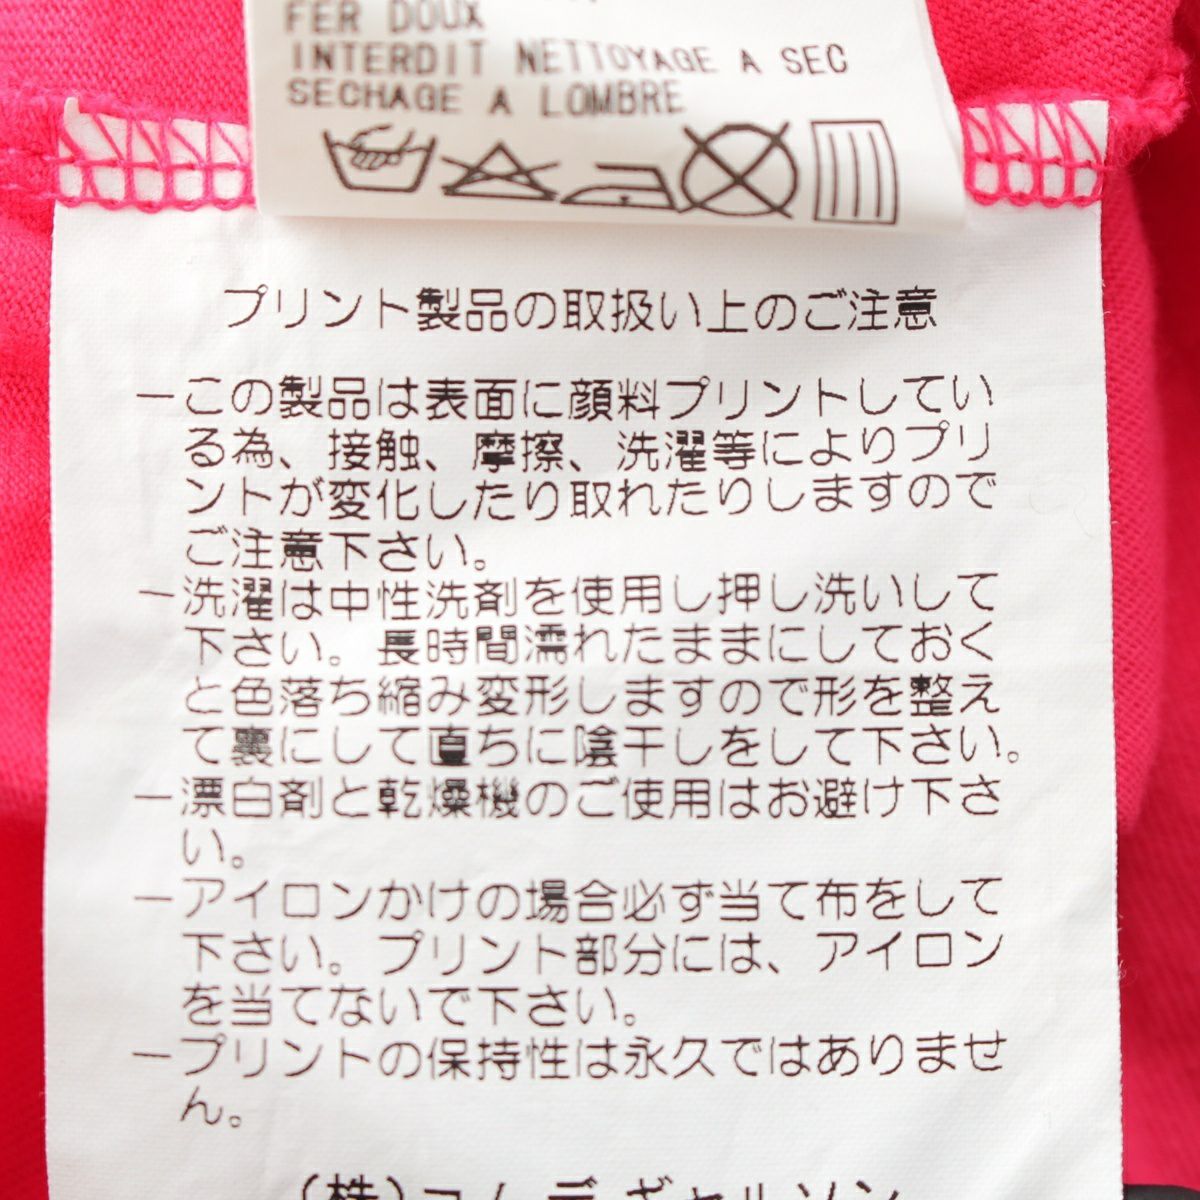 FER DOUX
INTERDIT NETTOYAGE A SEC
SECHAGE A LOMBRE
プリント製品の取扱い上のご注意
ーこの製品は表面に顔料プリントしてい
る為、接触、摩擦、洗濯等によりプリ
ントが変化したり取れたりしますので
ご注意下さい。
ー洗濯は中性洗剤を使用し押し洗いして
下さい。長時間濡れたままにしておく
と色落ち縮み変形しますので形を整え
て裏にして直ちに陰干しをして下さい。
ー漂白剤と乾燥機のご使用はお避け下さ
い。
ーアイロンかけの場合必ず当て布をして
下さい。プリント部分には、アイロン
を当てないで下さい。
ープリントの保持性は永久ではありませ
ん。
(株)コムデギャルソン